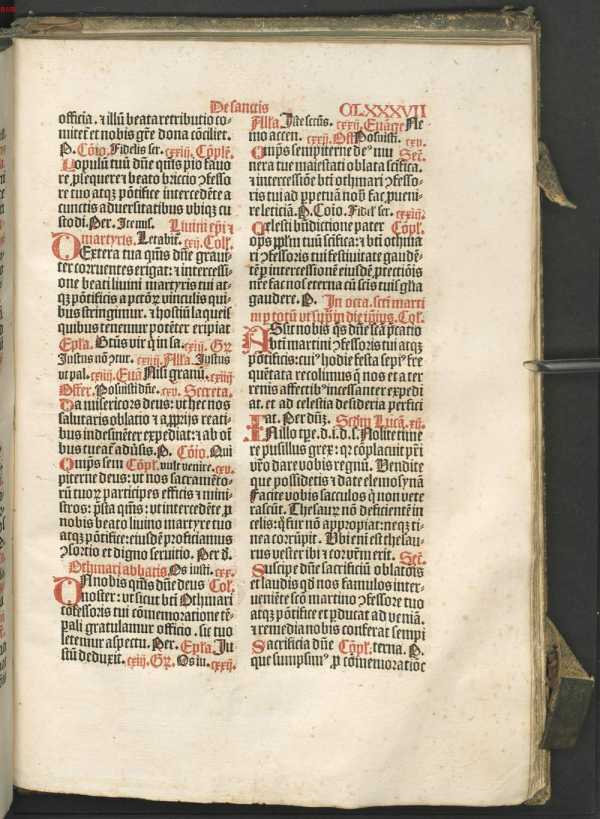 De sanctis
CLXXXVII
officia. ⁊ illũ beata retributio co-
mitet̃ et nobis gr̃e dona cõciliet.
P. Cõio. Fidelis ser. cxxiij. Cõplẽ.
Populũ tuũ dñe q̃ſs p̄io fauo
re p̄sequere: ⁊ beato briccio ꝯfesso
re tuo atqꝫ põtifice intercedẽte a
cunctis aduersitatibus vbiqꝫ cu
stodi. Per.
Liuini ep̃i ⁊
martyris. Letabit̃. cxij. Coll̃.
DExtera tua q̃ſs dñe graui
ter corruentes erigat: ⁊ intercessi
one beati liuini martyris tui at-
qꝫ põtificis a pctõꝝ vinculis qui-
bus stringimur. ⁊ hostiũ laqueis
quibus tenemur potẽter eripiat
Ep̃la. Bt̃us vir q̃ in sa. cxiij. Gr̃.
Justus nõ ꝯtur. cxiiij. All̃a. Justus
vt pal. cxiij. Euã Nisi granũ. cxiij
Offer. Posuisti dñe. cxv. Secreta.
Da misericors deus: vt hec nos
salutaris oblatio ⁊ a p̄prijs reati-
bus indesinẽter expediat: ⁊ ab oĩ
bus tueat̃ aduſis. P. Cõio. Qui
Omĩps sem Cõpl̃. vult venire. cxv.
piterne deus: vt nos sacramẽto-
rũ tuoꝝ participes efficis ⁊ mini-
stros: p̃sta q̃ſs: vt intercedẽte p̱
nobis beato liuino martyre tuo
atqꝫ põtifice: eiusdẽ proficiamus
ꝯsortio et digno seruitio. Per d.
Othmari abbatis. Os iusti. cxx.
DA nobis q̃ſs dñe deus Col̃.
noster: vt sicut bt̃i Othmari
cõfessoris tui cõmemoratione tẽ-
p̱ali gratulamur officio. sic tuo
letemur aspectu. Per. Ep̃la. Ju
stũ deduxit. cxij. Gr̃. Os iu. cxxij.
All̃a. Iste sct̃us. cxxij. Euãge Ne
mo accen. cxxij. Off Posuisti. cxv.
OMĩps sempiterne deꝰ mu Sec̃.
nera tue maiestati oblata scifica.
⁊ intercessiõe bt̃i othmari ꝯfesso-
ris tui ad p̱petuã nobis fac p̱ueni-
re leticiã. P. Coio. Fidel̃ ser. cxxiij.
Celesti bñdictione pater Cõpl̃.
oĩps pp̃lm tuũ sc̃ifica: ⁊ bt̃i othma
ri ꝯfessoris tui festiuitate gaudẽ-
tẽ p̱ intercessionẽ eiusdẽ ptectiõis
nẽ fac nos eterna cũ sc̃is tuis gl̃ia
gaudere. P. In octa. sct̃i marti
ni p totũ vt supͣ in die ip̃ius. Col̃.
ASsit nobis q̃s dñe sẽa p̃catio
bt̃i martini ꝯfessoris tui atqꝫ
põtificis: cuiꝰ hodie festa sepiꝰ fre
quẽtata recolimus q̃ nos et a ter
renis affectibꝰ incessanter expedi
at. et ad celestia desideria perfici
at. Per dñm. Scd̃m Lucã. xij.
IN illo tp̃e. d. i. d. s. Nolite time
re pusillus grex: q̃ cõplacuit pr̃i
vr̃o dare vobis regnũ. Vendite
que possidetis ⁊ date elemosynã
Facite vobis sacculos q̃ non vete
rascũt. Thesauꝝ nõ deficientẽ in
celis: q̃ fur nõ appropiat: neqꝫ ti-
nea corrũpit. Vbi eni est thesau-
rus vester ibi ⁊ cor vr̃m erit. Sec̃.
Suscipe dñe sacrificiũ oblatõis
et laudis qd̃ nos famulos inter-
ueniẽte sc̃o martino ꝯfessore tuo
atqꝫ põtifice ⁊ p̱ducat ad veniã.
⁊ remedia nobis conferat sempi
Sacrificia dñe Cõpl̃. terna. P.
que sumpsimꝰ, p̱ cõmemoratiõe